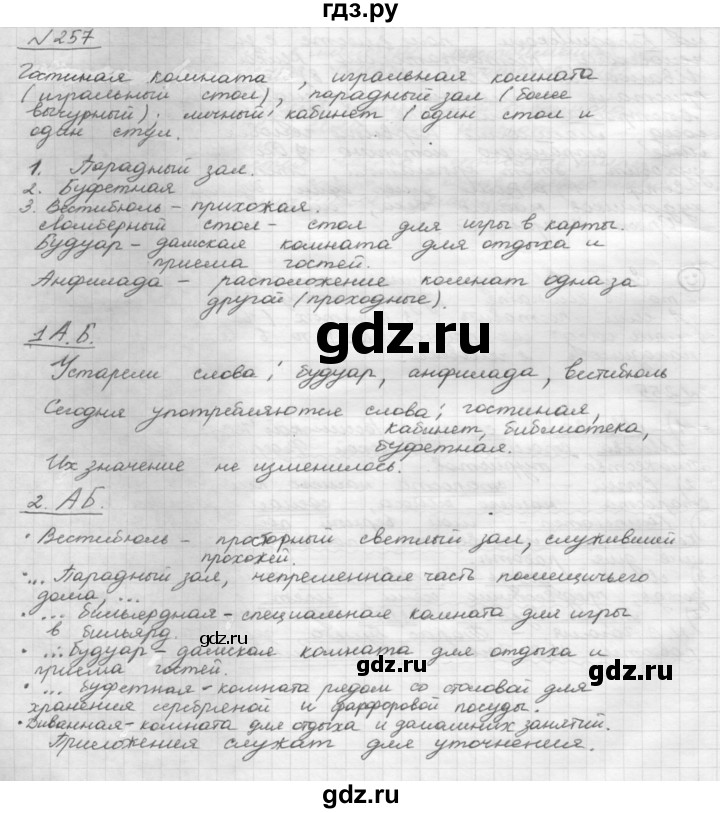 гдз.ру
№257
Гостиная комната, игральная комната
(игральный стол), парадный зал (более
вычурный); личный кабинет (один стол и
один стул.
1. Парадный зал.
2. Буфетная
3. Вестибюль - прихожая.
Ломберный стол - стол для игры в карты.
Будуар - дамская комната для отдыха и
приема гостей.
Анфилада - расположение комнат одна за
другой (проходные).
gdz.ru
1 А.Б.
Устарели слова: будуар, анфилада, вестибюль
Сегодня употребляются слова: гостиная,
кабинет, библиотека,
буфетная.
Их значение не изменилось.
2. АБ.
• Вестибюль - просторный светлый зал, служивший
прохожей.
• ... Парадный зал, непременная часть помещичьего
дома, ...
• ... бильярдная - специальная комната для игры
в бильярд.
gdz.ru
• ... будуар - дамская комната для отдыха и
приема гостей.
gdz.ru
• ... буфетная - комната рядом со столовой для
хранения серебряной и фарфоровой посуды.
• Диванная - комната для отдыха и домашних занятий.
Приложения служат для уточнения.
gdz.ru
gdz.ru